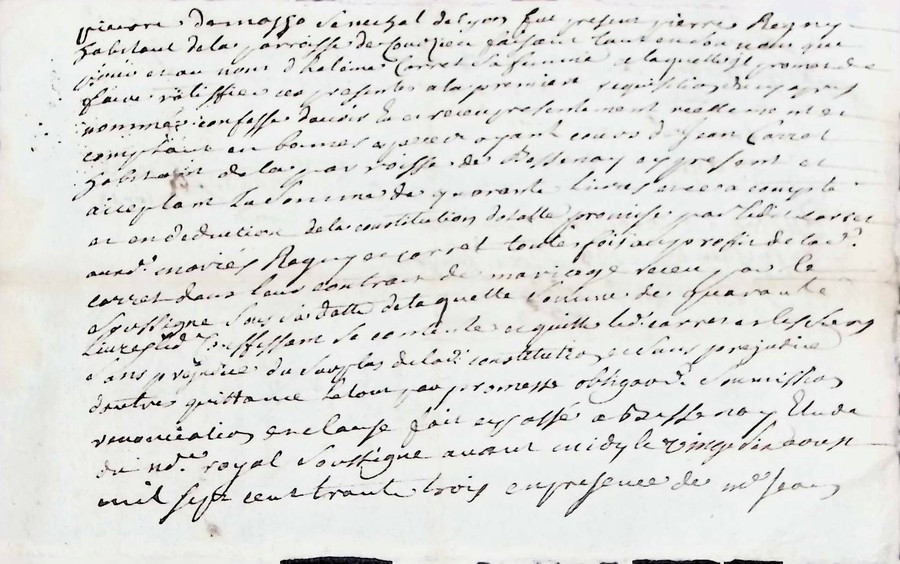 pierre Demasso Senechal de Lyon fut present pierre Ragny
habitant de la parroisse de Courzieu faisant tant en son nom que
et au nom d'helaine Carret sa femme a laquelle il promet de
faire ratiffier ces presentes a la premiere requisition
nommé confesse d'avoir eu et receu presentement reellement et
comptant en bonnes especes ayant cours de Jean Carret
habitant de la parroisse de Bessenay cy present et
acceptant la Somme de quarante Livres et ce a compte
et en deduction de la constitution de dotte promise par ledit carret
aux d. mariés Ragny et carret toutefois au profit de lad.
carret dans leur contract de mariage receu par le
Soussigné Sous sa datte de laquelle Somme de quarante
Livres led. confessant se contente et quitte led. carret et les siens
Sans prejudice du Surplus de lad. constitution et Sans prejudice
d'autres quittance le tout par promesse obligaon. Soumission
renonciation et clause fait et passé a Bessenay Etude
du nore. royal Soussigné avant midy le vingt six aoust
mil sept cent trante trois en presence de me. Jean